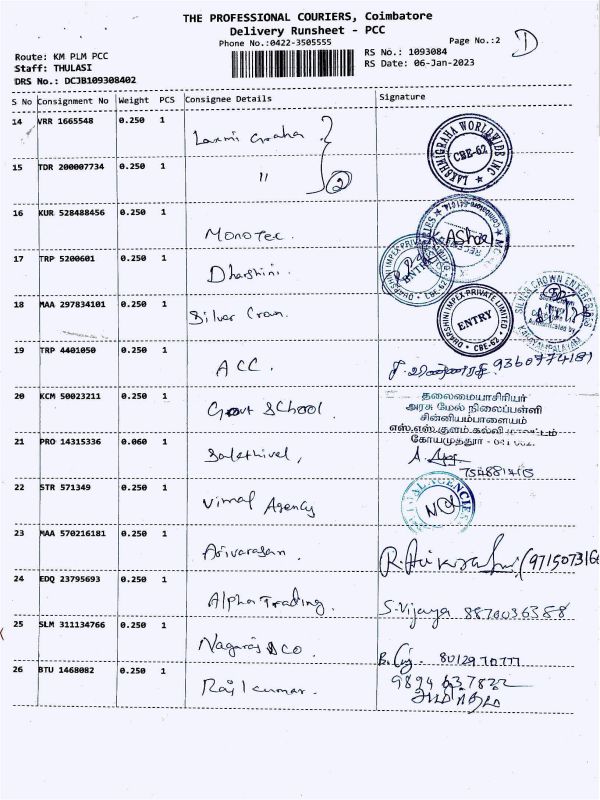 THE PROFESSIONAL COURIERS, Coimbatore
Delivery Runsheet - PCC
Phone No.:0422-3505555
Page No.:2
Route: KM PLM PCC
RS No.: 1093084
Staff: THULASI
RS Date: 06-Jan-2023
DRS No.: DCJB109308402
S No Consignment No Weight PCS Consignee Details Signature
14 VRR 1665548 0.250 1 Laxmi Graha
LAKSHMIGRAHA WORLDWIDE INC
CBE-62
15 TDR 200007734 0.250 1 " 2
16 KUR 528488456 0.250 1 Monotec. K. Ashok
17 TRP 5200601 0.250 1 Dharshini.
DHARSHINI IMPEX PRIVATE LIMITED
ENTRY
CBE-62
18 MAA 297834101 0.250 1 Silver Crown.
SILVER CROWN ENTERPRISES
19 TRP 4401050 0.250 1 ACC. 9360774181
20 KCM 50023211 0.250 1 Govt School.
தலைமையாசிரியர்
அரசு மேல் நிலைப்பள்ளி
சின்னியம்பாளையம்
எஸ்.எஸ்.குளம் கல்வி மாவட்டம்
கோயமுத்தூர் - 641 062.
21 PRO 14315336 0.060 1 Sakthivel,
22 STR 571349 0.250 1 Vimal Agency
23 MAA 570216181 0.250 1 Arivarasan.
24 EDQ 23795693 0.250 1 Alpha Trading. S. Vijaya 8870036388
25 SLM 311134766 0.250 1 Nagaraj & CO. 8012970777
26 BTU 1468082 0.250 1 Rajkumar. 9894637822